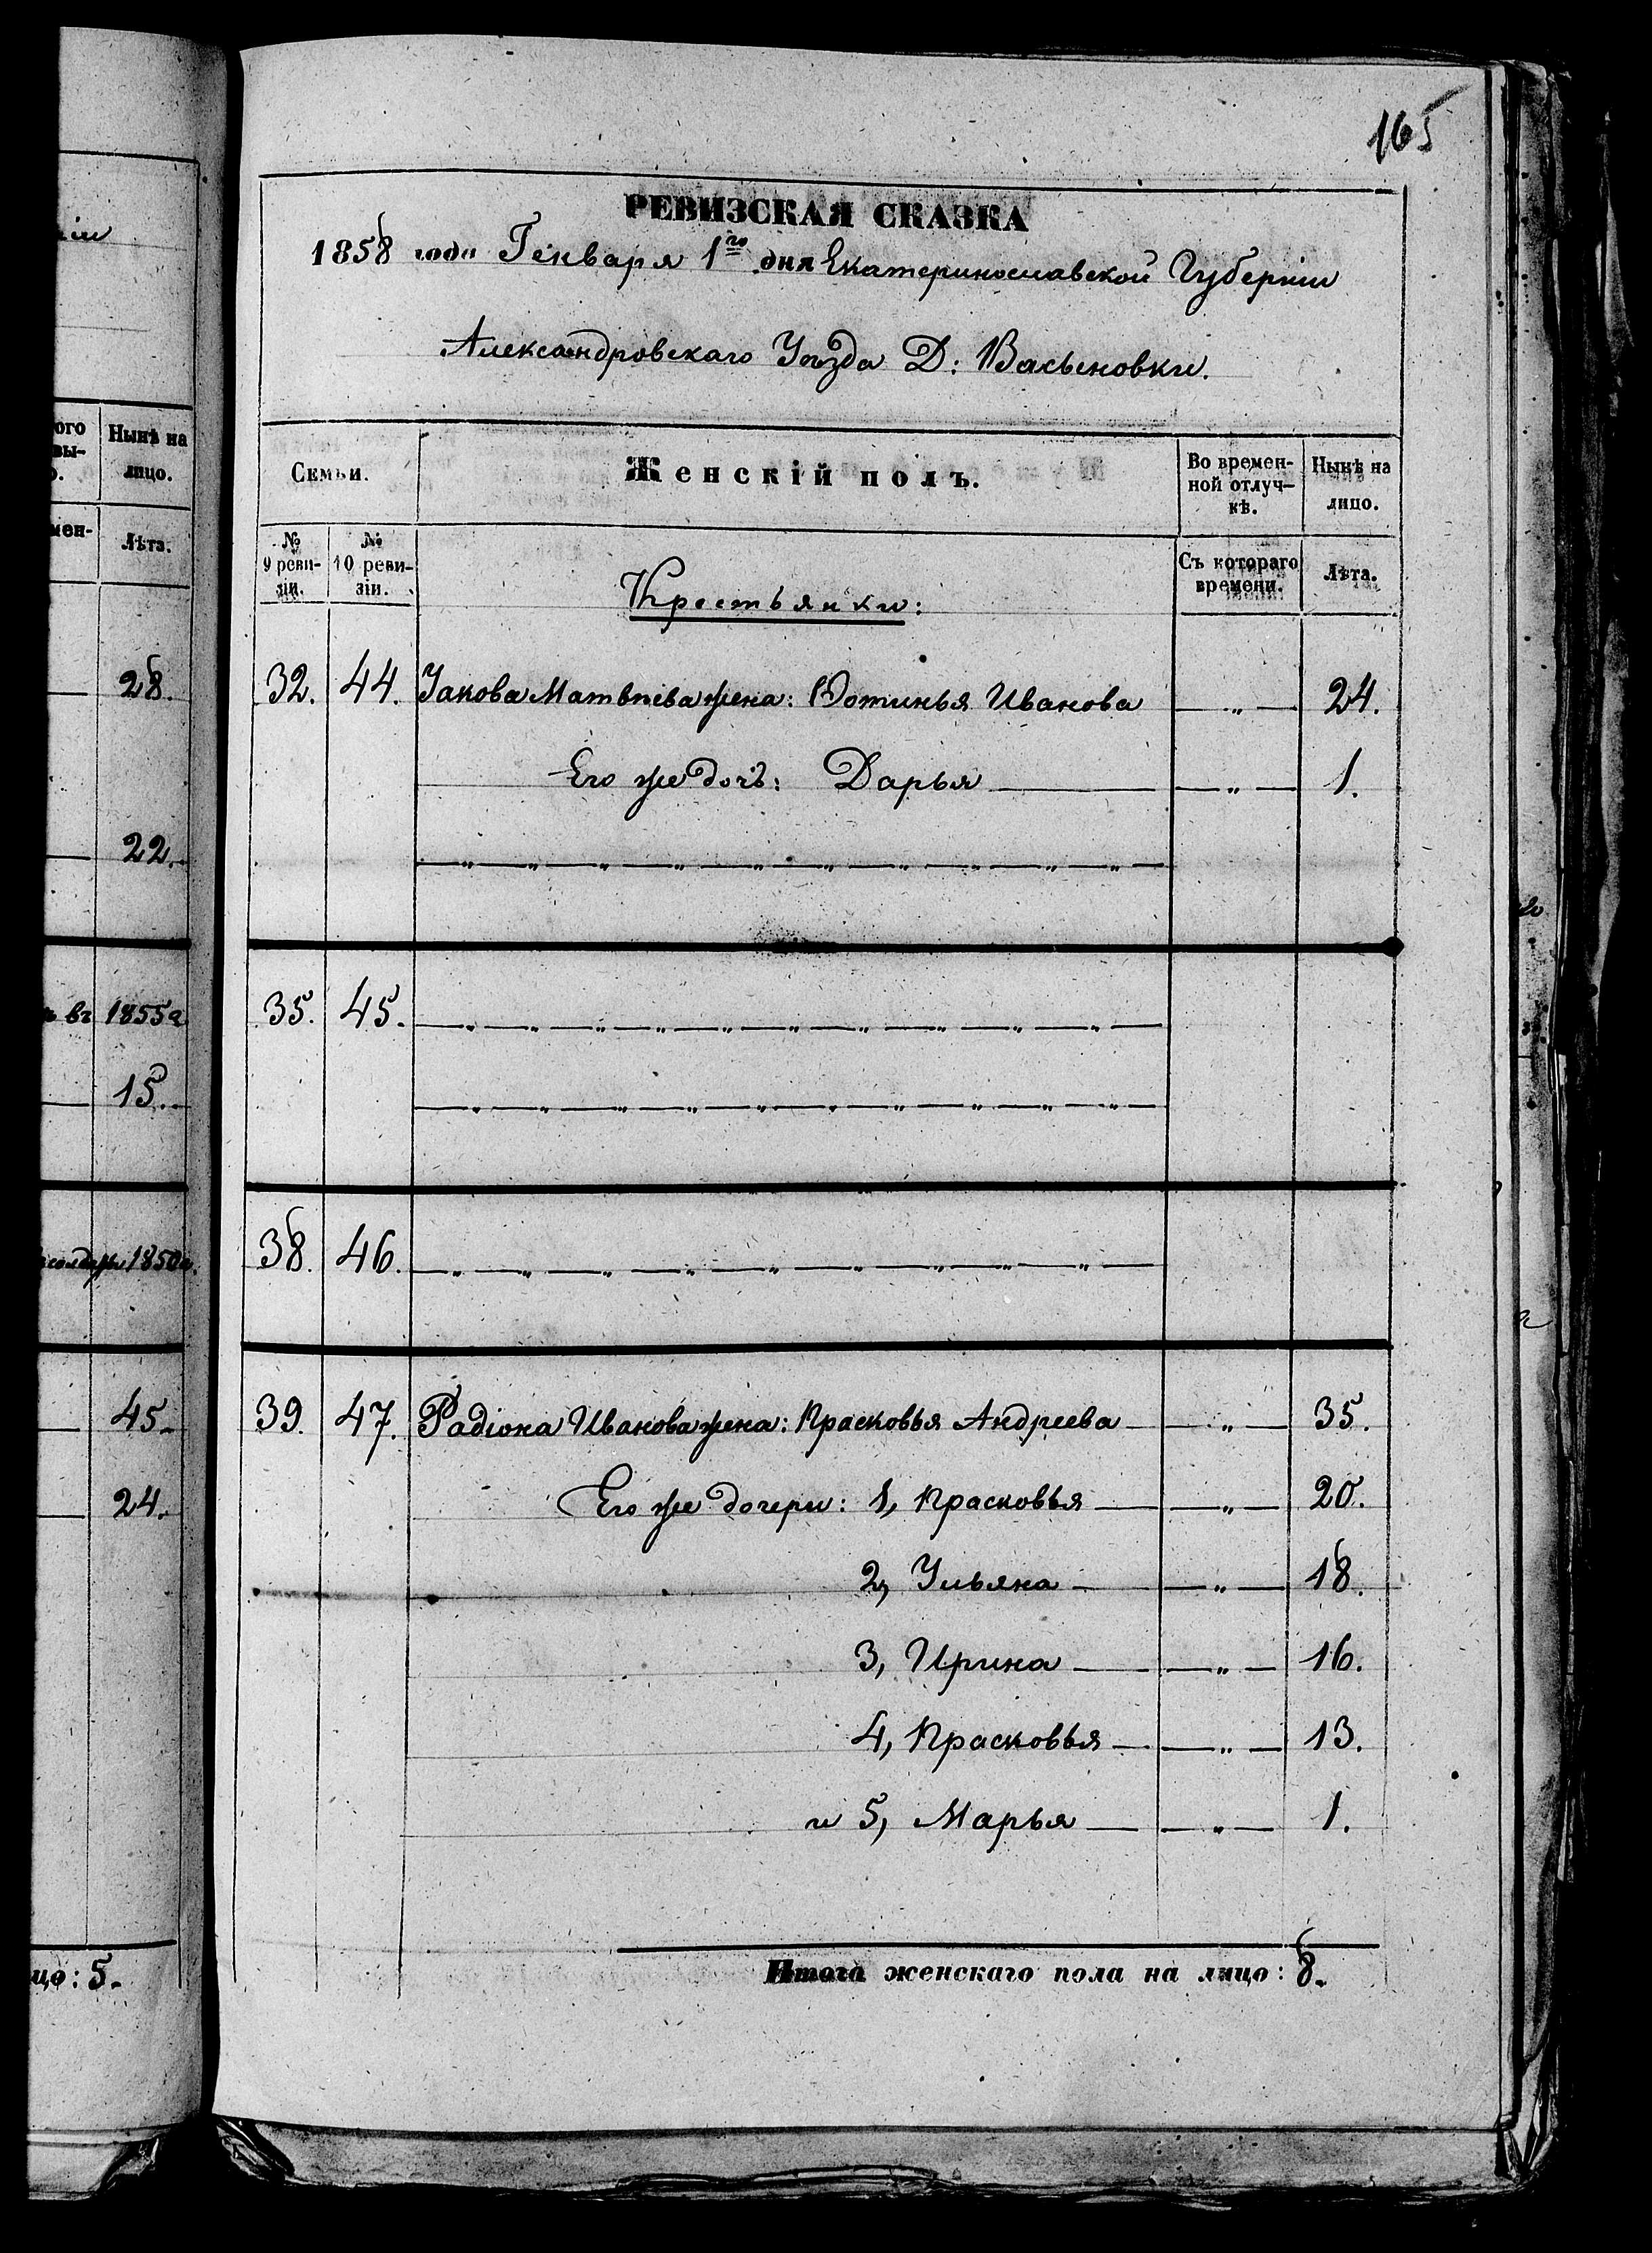 165
РЕВИЗСКАЯ СКАЗКА
1858 года Генваря 1го дня Екатеринославской Губерніи
Александровскаго Уѣзда Д: Васьиновки.
Семьи.
Женскій полъ.
Во времен-
ной отлуч-
кѣ.
Нынѣ на
лицо.
№
9 реви-
зіи.
№
10 реви-
зіи.
Съ котораго
времени.
Лѣта.
Крестьянки:
32. 44. Якова Матвѣева жена: Фотинья Иванова — „ — 24.
Его же дочь: Дарья — „ — 1.
35. 45.
38. 46.
39. 47. Радіона Иванова жена: Прасковья Андреева — „ — 35.
Его же дочери: 1, Прасковья — „ — 20.
2, Ульяна — „ — 18.
3, Ирина — „ — 16.
4, Прасковья — „ — 13.
и 5, Марья — „ — 1.
Итога женскаго пола на лицо: 8.
ого
вы-
Нынѣ на
лицо.
мен-
Лѣта.
28.
22.
въ 1855г
15.
1850г.
45.
24.
цо: 5.